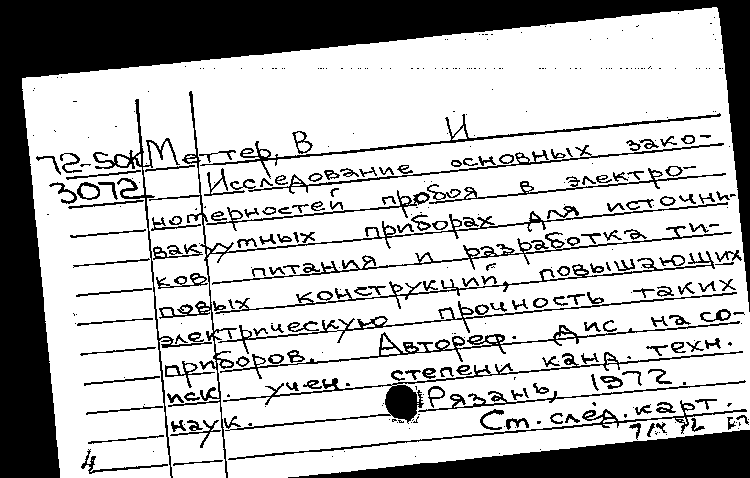 72-50К Меттер, В И
3072 Исследование основных зако-
номерностей пробоя в электро-
вакуумных приборах для источни-
ков питания и разработка ти-
повых конструкций, повышающих
электрическую прочность таких
приборов. Автореф. дис. на со-
иск. учен. степени канд. техн.
наук. Рязань, 1972.
Ст. след. карт.
4